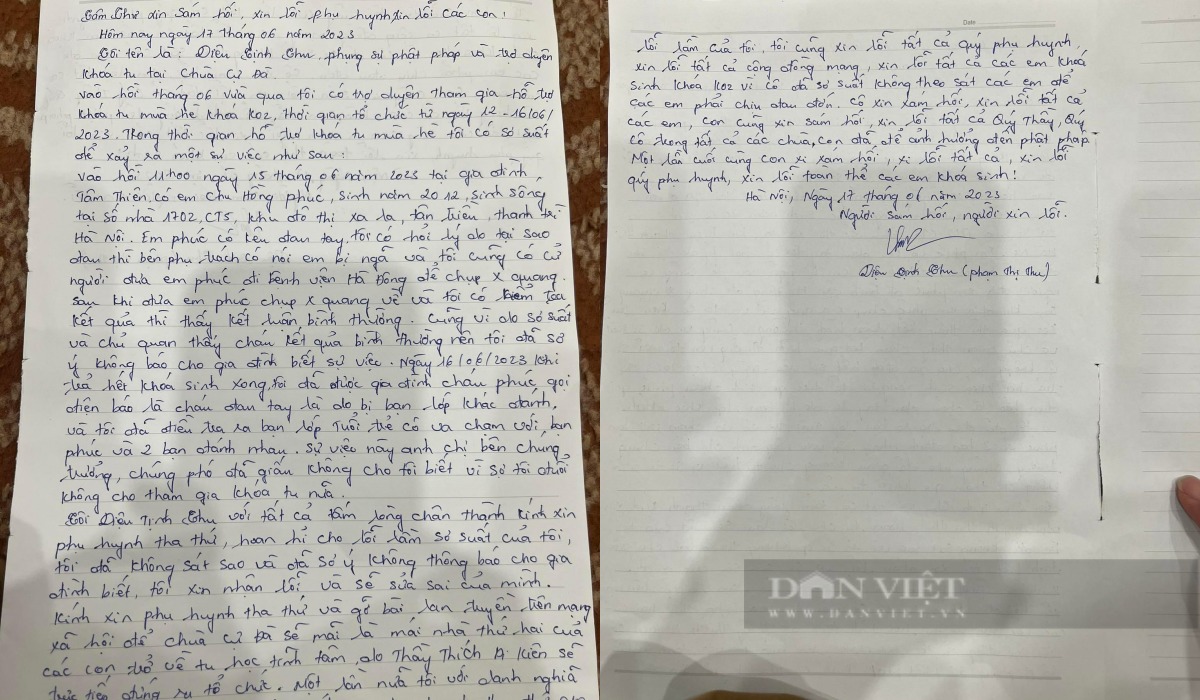 Tâm thư xin sám hối, xin lỗi phụ huynh xin lỗi các con!
Hôm nay ngày 17 tháng 06 năm 2023
Tôi tên là: Diệu Tịnh Thu, phụng sự phật pháp và trợ duyên
khóa tu tại chùa Cự Đà
vào hồi tháng 06 vừa qua tôi có trợ duyên tham gia hỗ trợ
khóa tu mùa hè khóa K02, thời gian tổ chức từ ngày 12-16/06/
2023. Trong thời gian hỗ trợ khóa tu mùa hè tôi có sơ suất
để xảy ra một sự việc như sau:
vào hồi 11h00 ngày 15 tháng 06 năm 2023 tại gia đình,
Tâm Thiên, có em Chu Hồng phúc, sinh năm 2012, sinh sống
tại số nhà 1702, CT5, khu đô thị xa la, tân triều, thanh trì
Hà Nội. Em phúc có kêu đau tay, tôi có hỏi lý do tại sao
đau thì bên phụ trách có nói em bị ngã và tôi cũng có cử
người đưa em phúc đi bệnh viện Hà Đông để chụp X quang.
sau khi đưa em phúc chụp X quang về và tôi có kiểm tra
kết quả thì thấy kết luận bình thường. Cũng vì do sơ suất
và chủ quan thấy cháu kết quả bình thường nên tôi đã sơ
ý không báo cho gia đình biết sự việc. Ngày 16/06/2023 khi
trả hết khóa sinh xong, tôi đã được gia đình cháu phúc gọi
điện báo là cháu đau tay là do bị bạn lớp khác đánh,
và tôi đã điều tra ra bạn lớp Tuổi trẻ có va chạm với bạn
phúc và 2 bạn đánh nhau. sự việc này anh chị bên chúng
trưởng, chúng phó đã giấu không cho tôi biết vì sợ tôi đuổi
không cho tham gia khóa tu nữa.
Tôi Diệu Tịnh Thu với tất cả tấm lòng chân thành kính xin
phụ huynh tha thứ, hoan hỉ cho lỗi lầm sơ suất của tôi,
tôi đã không sát sao và đã sơ ý không thông báo cho gia
đình biết, tôi xin nhận lỗi và sẽ sửa sai của mình.
Kính xin phụ huynh tha thứ và gỡ bài lan truyền trên mạng
xã hội để chùa cự Đà sẽ mãi là mái nhà thứ hai của
các con trở về tu học tịnh tâm, do Thầy Thích Kiên sẽ
trực tiếp đứng ra tổ chức. Một lần nữa tôi với danh nghĩa
Date
lỗi lầm của tôi, tôi cũng xin lỗi tất cả quý phụ huynh,
xin lỗi tất cả cộng đồng mạng, xin lỗi tất cả các em khóa
sinh khóa K02 vì cô đã sơ suất không theo sát các em để
các em phải chịu đau đớn. Cô xin xám hối, xin lỗi tất cả
các em, con cũng xin sám hối, xin lỗi tất cả Quý Thầy, Quý
cô trong tất cả các chùa, con đã để ảnh hưởng đến phật pháp.
Một lần cuối cùng con xi xám hối, xi lỗi tất cả, xin lỗi
quý phụ huynh, xin lỗi toàn thể các em khóa sinh!
Hà Nội, Ngày 17 tháng 06 năm 2023
Người sám hối, người xin lỗi.
Diệu Tịnh Thu (phạm Thị Thu)
DÂN VIỆT
WWW.DANVIET.VN